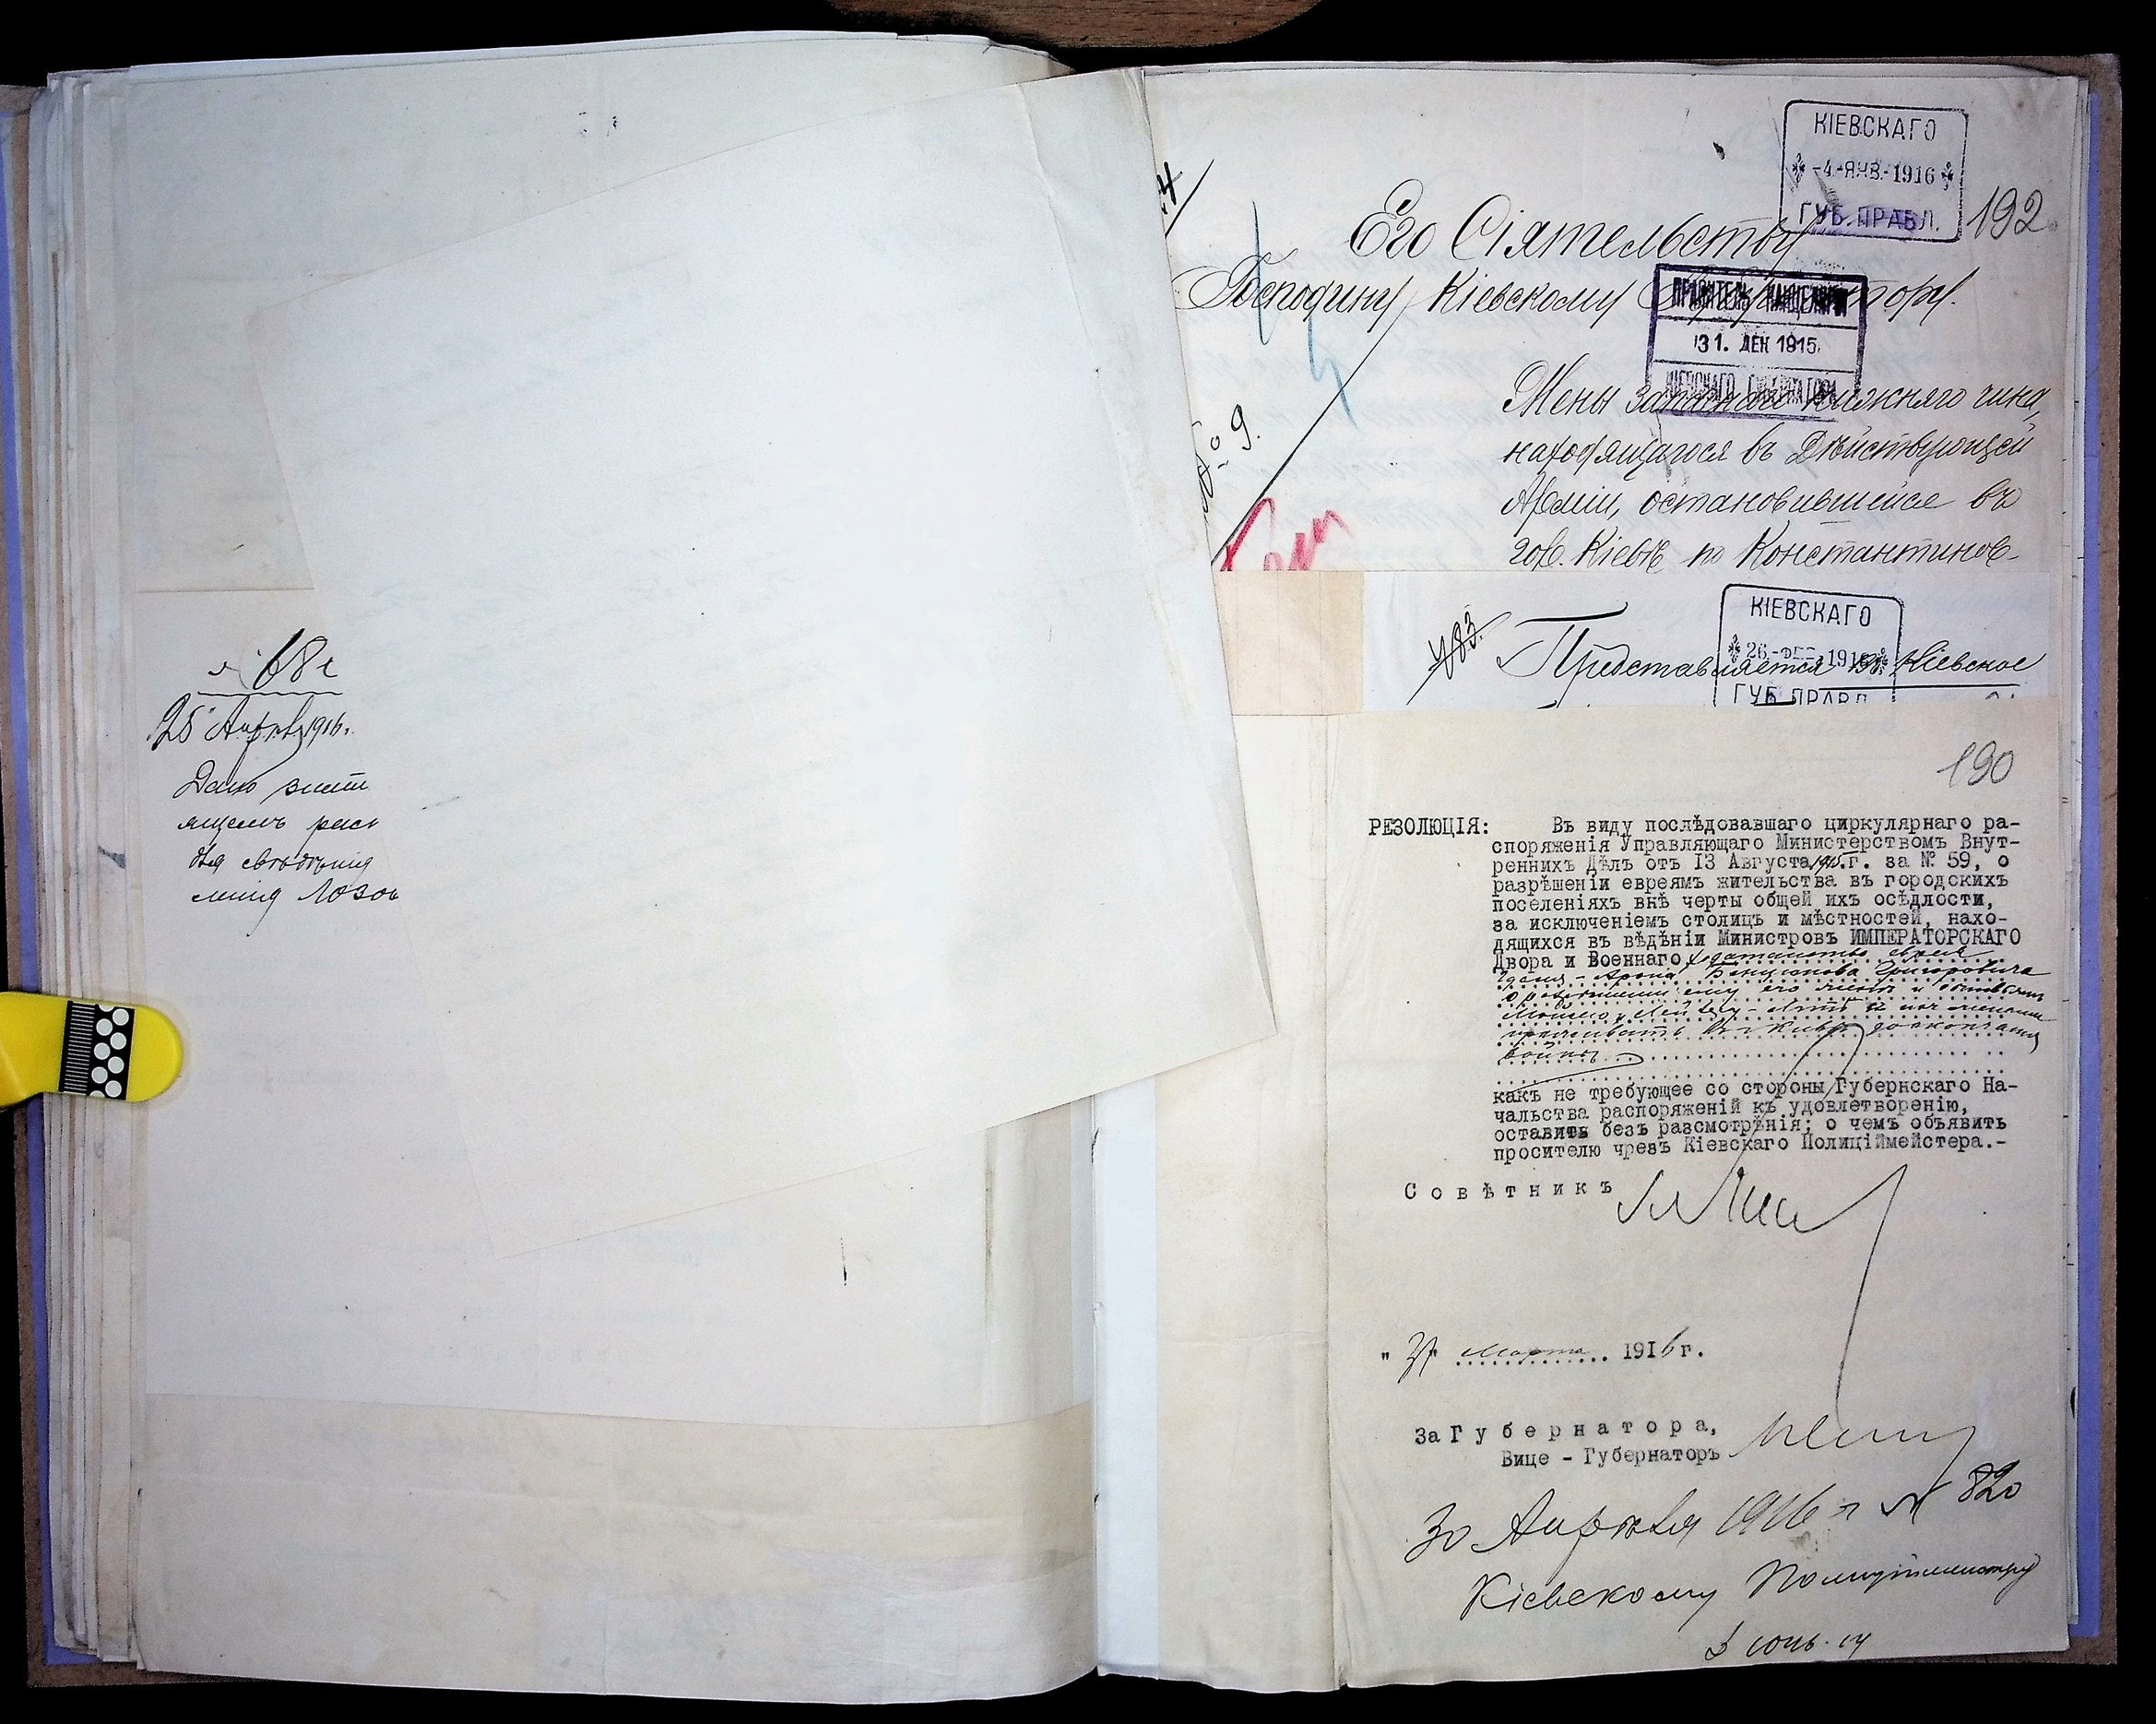 25 Апрѣля 1916.
Дано
для свѣдѣнія
КІЕВСКАГО
-4-ЯНВ.-1916
ГУБ. ПРАВЛ.
192
Его Сіятельству
Господину Кіевскому
ПРАВИТЕЛЬ КАНЦЕЛЯРІИ
31. ДЕК 1915
КІЕВСКАГО ГУБЕРНАТОРА
Жены запасного нижняго чина,
находящагося въ Дѣйствующей
Арміи, остановившейся въ
гор. Кіевѣ по Константинов-
№ 9.
483.
КІЕВСКАГО
26
ГУБ. ПРАВЛ.
Представляется въ Кіевское
190
РЕЗОЛЮЦІЯ: Въ виду послѣдовавшаго циркулярнаго ра-
споряженія Управляющаго Министерствомъ Внут-
реннихъ Дѣлъ отъ 13 Августа 1915 г. за № 59, о
разрѣшеніи евреямъ жительства въ городскихъ
поселеніяхъ внѣ черты общей ихъ осѣдлости,
за исключеніемъ столицъ и мѣстностей, нахо-
дящихся въ вѣдѣніи Министровъ ИМПЕРАТОРСКАГО
Двора и Военнаго, ходатайство еврея
Арона Бенціонова Григоровича
о разрѣшеніи ему его женѣ и
проживать въ г. Кіевѣ до окончанія
войны
какъ не требующее со стороны Губернскаго На-
чальства распоряженій къ удовлетворенію,
оставить безъ разсмотрѣнія; о чемъ объявить
просителю чрезъ Кіевскаго Полиціймейстера.-
Совѣтникъ
" Марта 1916 г.
За Губернатора,
Вице - Губернаторъ
30 Апрѣля 1916 г № 820
Кіевскому Полиціймейстеру